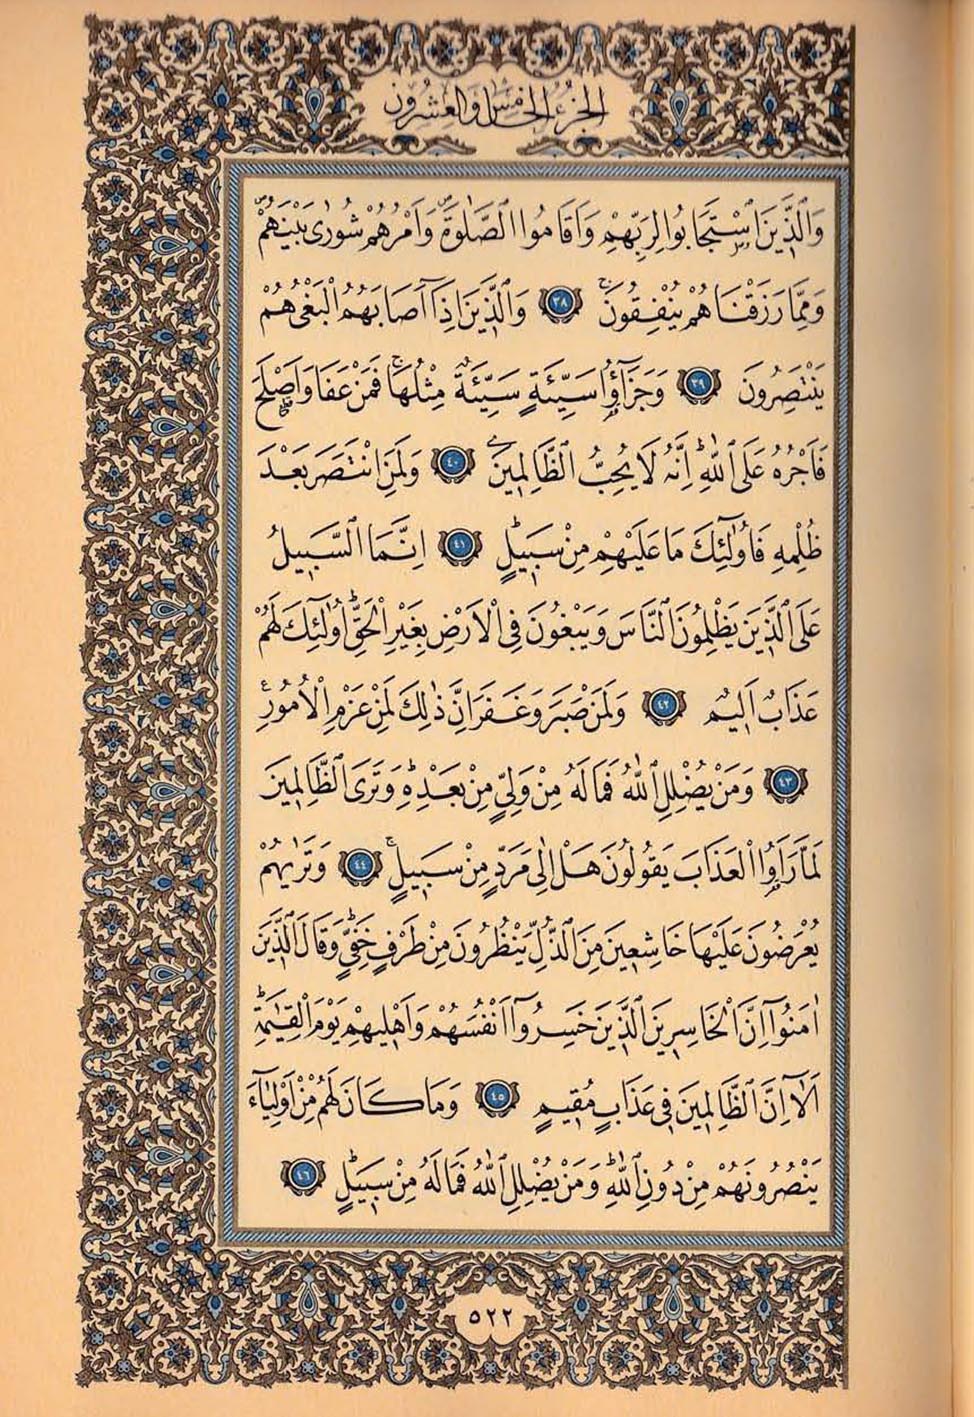 الجزء الخامس والعشرون
وَالَّذِينَ اسْتَجَابُوا لِرَبِّهِمْ وَاَقَامُوا الصَّلٰوةَۖ وَاَمْرُهُمْ شُورٰى بَيْنَهُمْۖ
وَمِمَّا رَزَقْنَاهُمْ يُنْفِقُونَۚ ﴿٣٨﴾ وَالَّذِينَ اِذَٓا اَصَابَهُمُ الْبَغْيُ هُمْ
يَنْتَصِرُونَ ﴿٣٩﴾ وَجَزٰٓؤُا سَيِّئَةٍ سَيِّئَةٌ مِثْلُهَاۚ فَمَنْ عَفَا وَاَصْلَحَ
فَاَجْرُهُ عَلَى اللّٰهِۜ اِنَّهُ لَا يُحِبُّ الظَّالِمِينَ ﴿٤٠﴾ وَلَمَنِ انْتَصَرَ بَعْدَ
ظُلْمِهِ فَاُو۬لٰٓئِكَ مَا عَلَيْهِمْ مِنْ سَبِيلٍۜ ﴿٤١﴾ اِنَّمَا السَّبِيلُ
عَلَى الَّذِينَ يَظْلِمُونَ النَّاسَ وَيَبْغُونَ فِي الْاَرْضِ بِغَيْرِ الْحَقِّۜ اُو۬لٰٓئِكَ لَهُمْ
عَذَابٌ اَلِيمٌ ﴿٤٢﴾ وَلَمَنْ صَبَرَ وَغَفَرَ اِنَّ ذٰلِكَ لَمِنْ عَزْمِ الْاُمُورِ۟
﴿٤٣﴾ وَمَنْ يُضْلِلِ اللّٰهُ فَمَا لَهُ مِنْ وَلِيٍّ مِنْ بَعْدِهِۜ وَتَرَى الظَّالِمِينَ
لَمَّا رَاَوُا الْعَذَابَ يَقُولُونَ هَلْ اِلٰى مَرَدٍّ مِنْ سَبِيلٍۚ ﴿٤٤﴾ وَتَرٰيهُمْ
يُعْرَضُونَ عَلَيْهَا خَاشِعِينَ مِنَ الذُّلِّ يَنْظُرُونَ مِنْ طَرْفٍ خَفِيٍّۜ وَقَالَ الَّذِينَ
اٰمَنُٓوا اِنَّ الْخَاسِرِينَ الَّذِينَ خَسِرُٓوا اَنْفُسَهُمْ وَاَهْلِيهِمْ يَوْمَ الْقِيٰمَةِۜ
اَلَٓا اِنَّ الظَّالِمِينَ فِي عَذَابٍ مُقِيمٍ ﴿٤٥﴾ وَمَا كَانَ لَهُمْ مِنْ اَوْلِيَٓاءَ
يَنْصُرُونَهُمْ مِنْ دُونِ اللّٰهِۜ وَمَنْ يُضْلِلِ اللّٰهُ فَمَا لَهُ مِنْ سَبِيلٍۜ ﴿٤٦﴾
٥٢٢